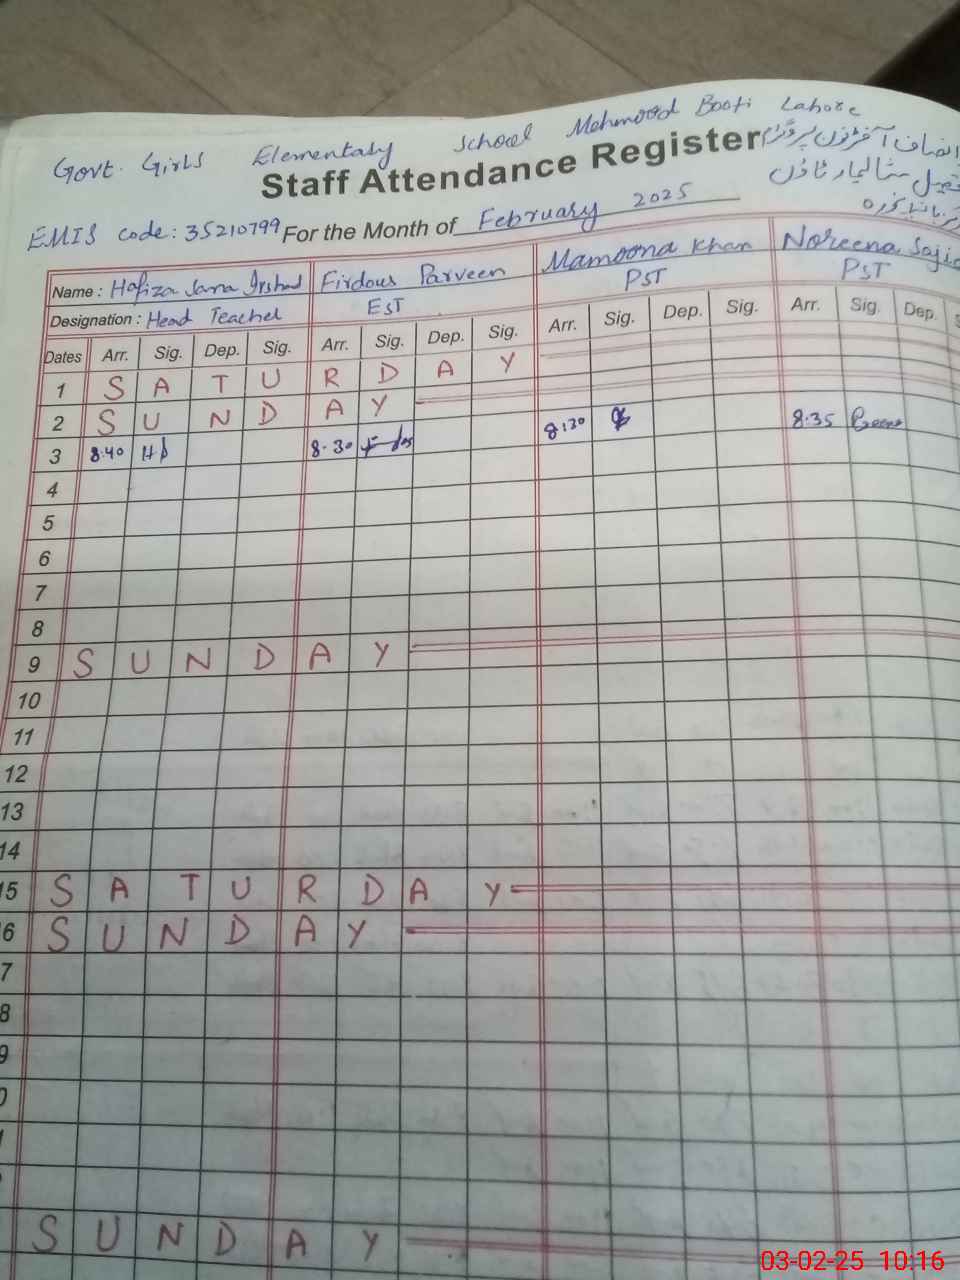 Govt. Girls Elementary School Mehmood Booti Lahore
Staff Attendance Register
انصاف آفٹرنون پروگرام
تحصیل شالیمار ٹاؤن
EMIS code: 35210799 For the Month of February 2025
Name : Hafiza Sana Irshad Firdous Parveen Mamoona Khan Noreena Sajid
Designation : Head Teacher EST PST PST
Dates Arr. Sig. Dep. Sig. Arr. Sig. Dep. Sig. Arr. Sig. Dep. Sig. Arr. Sig. Dep.
1 S A T U R D A Y
2 S U N D A Y
3 8.40 8.30 8:30 8.35
4
5
6
7
8
9 S U N D A Y
10
11
12
13
14
15 S A T U R D A Y
6 S U N D A Y
7
8
9
0
S U N D A Y
03-02-25 10:16